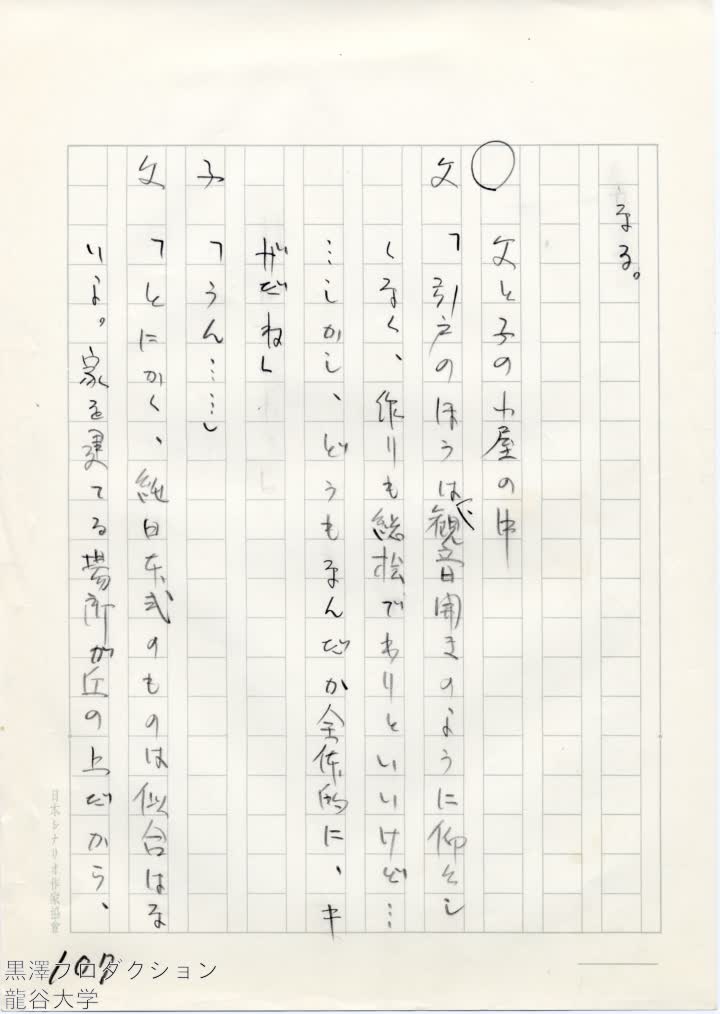 なる。
○ 父と子の小屋の中
父「引戸のほうは、観音開きのように仰々し
くなく、作りも総桧でわりといいけど…
…しかし、どうもなんだか全体的に、キ
がだね」
子「うん……」
父「とにかく、純日本式のものは似合はな
いよ。家を建てる場所が丘の上だから、
日本シナリオ作家協會
107
黒澤プロダクション
龍谷大学